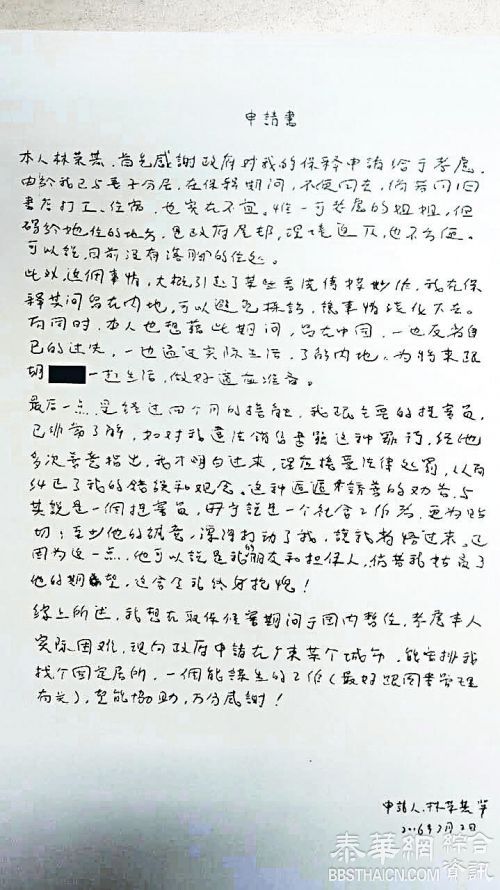 申請書
本人林荣基，首先感謝政府对我的保释申請给于考慮。
由於我已与妻子分居，在保释期间，不便回去，倘若问旧
書店打工、住宿，也实在不宜。惟一可考慮的姐姐，但
碍於她住的地方，是政府屋邨，環境迫仄，也不方便。
可以说，目前没有落脚的住处。
此以这個事情，大概引起了某些委流傳授炒作，我在保
释其间留在内地，可以避免採訪，讓事情淡化下去。
而同时，本人也想藉此期间，留在中国，一边反省自
己的过失，一边通过实际生活，了解内地，为将来跟
胡 一起生活，做好適应准备。
最后一点，是经过四个月的接触，我跟主要的提審員，
已非常了解，如对我違法销售書籍这种罪行，经他
多次善意指出，我才明白过来，理应接受法律处罰，从而
纠正了我的错誤和观念。这种循循善誘的劝告，与
其说是一個提審員，毋宁说是一个社会工作者，更为贴
切；至少他的誠意，深深打动了我，讓我省悟过来。正
因为这一点，他可以说是我的朋友和担保人，倘若我辜負了
他的期望，这会令我终身抱愧！
綜上所述，我想在取保候審期间于国内暫住，考慮本人
实际困难，现向政府申請在广东某个城市，能安排我
找个固定居所，一個能谋生的工作（最好跟图書管理
有关），望能协助，万分感謝！
申請人：林荣基 字
2016年3月2日
泰華網 綜合資訊
BBSTHAICN.COM